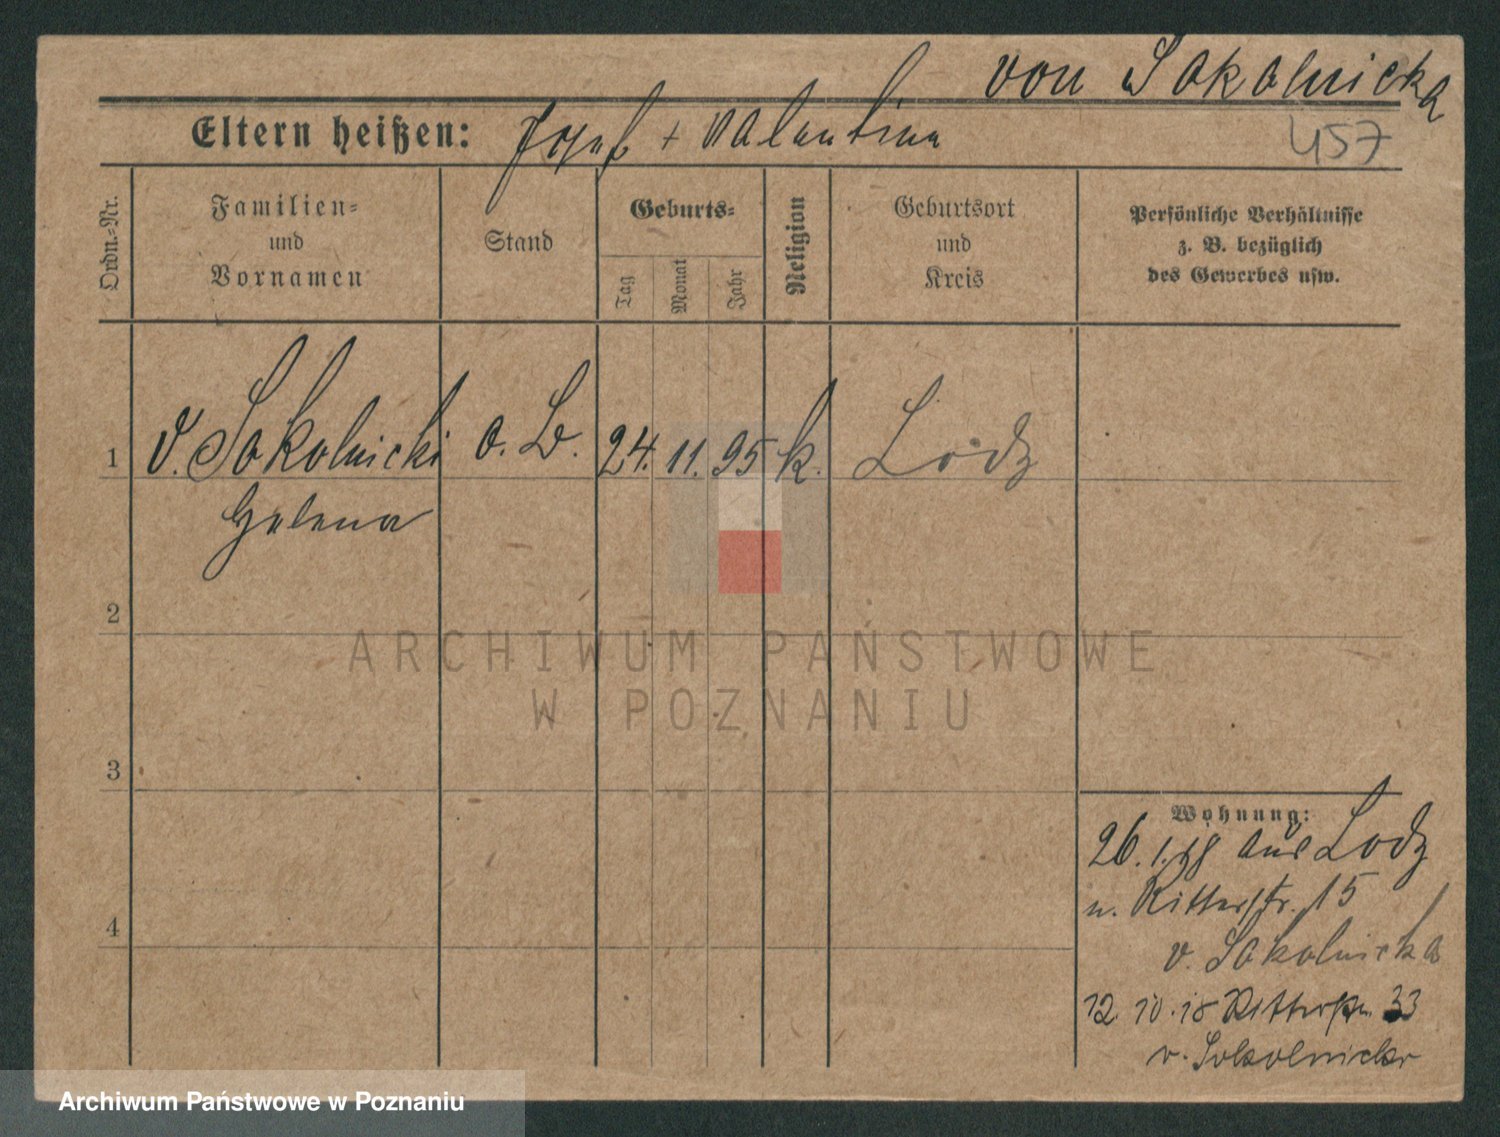 von Sokolnicka
Eltern heißen: Josef + Valentina
457
Ordn.-Nr.
Familien-
und
Vornamen
Stand
Geburts-
Tag
Monat
Jahr
Religion
Geburtsort
und
Kreis
Persönliche Verhältnisse
z. B. bezüglich
des Gewerbes usw.
1 v. Sokolnicki o. B. 24. 11. 95 k. Lodz
Helena
2
ARCHIWUM PAŃSTWOWE
W POZNANIU
3
Wohnung:
26. 1. 18 aus Lodz
n. Ritterstr. 15
v. Sokolnicka
4
12. 10. 18 Ritterstr. 33
v. Sokolnicka
Archiwum Państwowe w Poznaniu